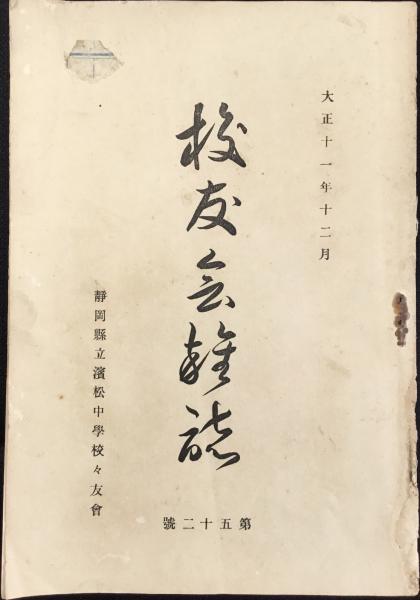 大正十一年十二月
校友会雑誌
靜岡縣立濱松中學校々友會
第五十二號